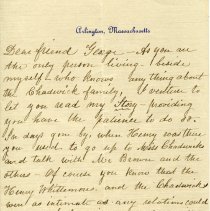 Arlington, Massachusetts
Dear friend George - As you are
the only person living - beside
myself who knows anything about
the Chadwick family, I venture to
let you read my Story - providing
you have the patience to do so.
In days gone by, when Henry was there
you used to go up to Chadwicks
and talk with Mr Brown and the
others - Of course you know that the
Henry Whittemores and the Chadwicks
were as intimate as any relations could